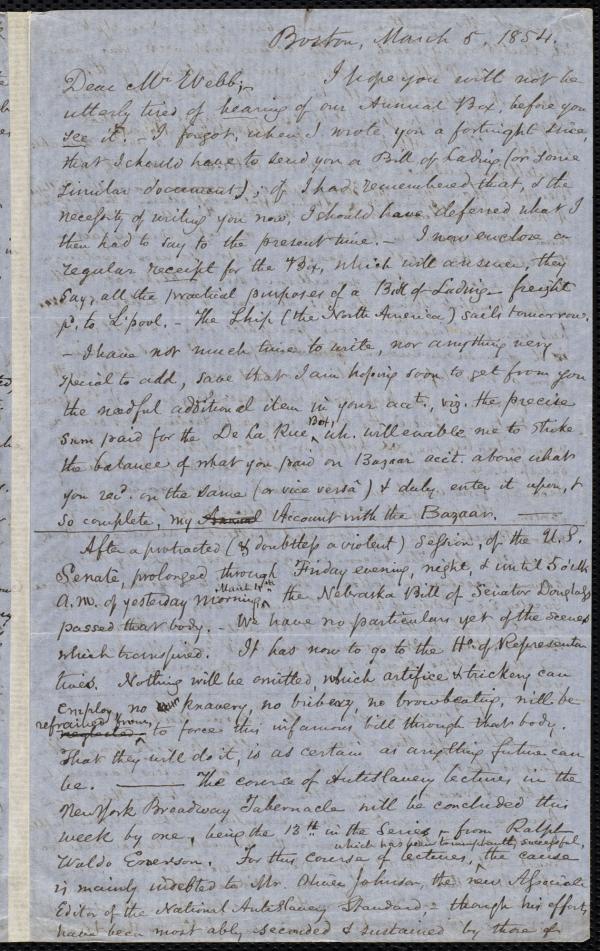 Boston, March 5, 1854.
Dear Mr. Webb;— I hope you will not be
utterly tired of hearing of our Annual Box, before you
see it. — I forgot, when I wrote you a fortnight since,
that I should have to send you a Bill of Lading (or some
similar document); if I had remembered that, & the
necessity of writing you now, I should have deferred what I
then had to say to the present time. — I now enclose a
regular receipt for the Box, which will answer, they
say, all the practical purposes of a Bill of Lading — freight
pd. to L'pool. — The Ship (the North America) sails tomorrow.
— I have not much time to write, nor anything very
special to add, save that I am hoping soon to get from you
the needful additional item in your acct., viz. the precise
sum paid for the De La Rue Box, wh. will enable me to strike
the balance of what you paid on Bazaar acct. above what
you recd. on the same (or vice versâ) & duly enter it upon, &
so complete, my Annual Account with the Bazaar. —
After a protracted (& doubtless a violent) session, of the U.S.
Senate, prolonged through Friday evening, night, & until 5 o'clk
A.M. of yesterday morning, March 4th the Nebraska Bill of Senator Douglass
passed that body. — We have no particulars yet of the scenes
which transpired. It has now to go to the Ho. of Representa-
tives. Nothing will be omitted, which artifice & trickery can
employ, no knavery, no bribery, no browbeating, will be
refrained from, neglected, to force this infamous bill through that body.
That they will do it, is as certain as anything future can
be. — The course of Antislavery lectures in the
New York Broadway Tabernacle will be concluded this
week by one, being the 13th in the Series, from Ralph
Waldo Emerson. For this course of lectures, which has been triumphantly successful, the cause
is mainly indebted to Mr. Oliver Johnson, the new Associate
Editor of the National AntiSlavery Standard, — though his efforts
have been most ably seconded & sustained by those of